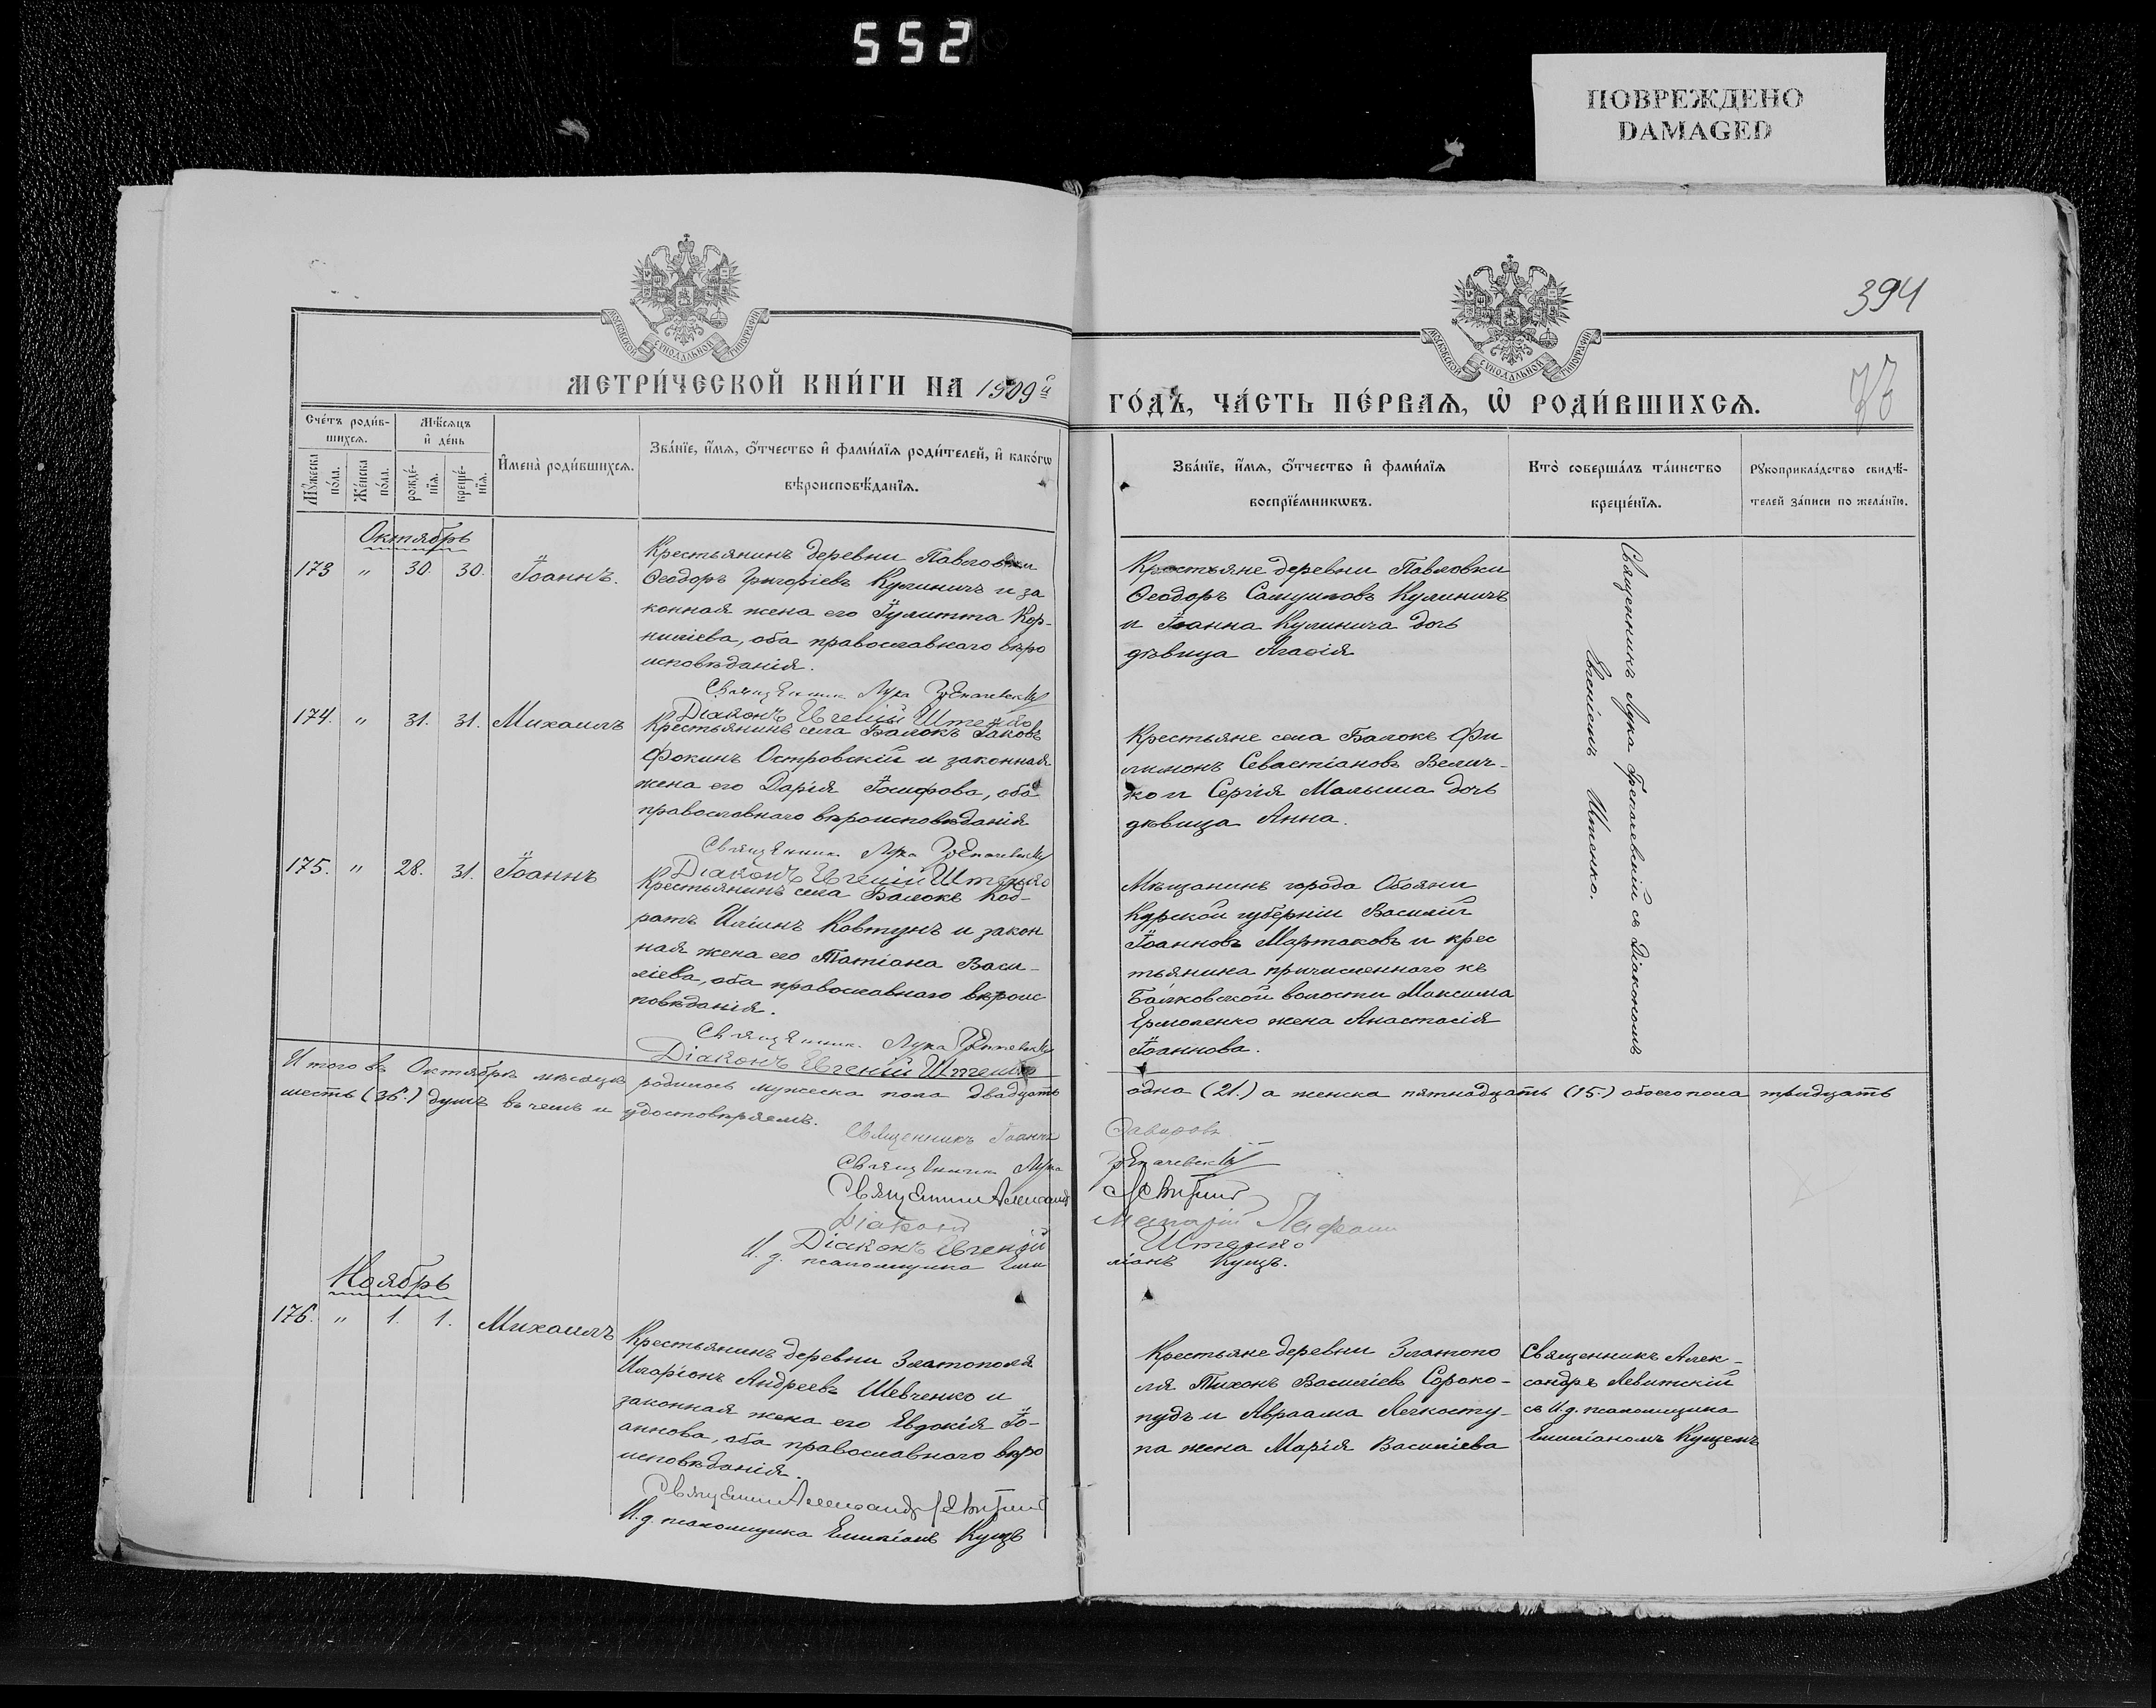 552
ПОВРЕЖДЕНО
DAMAGED
394
МОСКОВСКОЙ СѴНОДАЛЬНОЙ ТИПОГРАФІИ
МОСКОВСКОЙ СѴНОДАЛЬНОЙ ТИПОГРАФІИ
МЕТРИ́ЧЕСКОЙ КНИ́ГИ НА 1909й
ГО́ДЪ, ЧА́СТЬ ПЕ́РВАѦ, Ѡ҆ РОДИ́ВШИХСѦ.
Сче́тъ роди́в-
шихсѧ.
Мꙋ́жеска по́ла.
Же́нска по́ла.
Мѣ́сѧцъ
и҆ де́нь
рожде́-
нїѧ.
креще́-
нїѧ.
И҆мена̀ роди́вшихсѧ.
Зва́нїе, и҆́мѧ, ѻ҆́тчество и҆ фами́лїѧ роди́телей, и҆ како́гѡ
вѣроисповѣ́данїѧ.
Зва́нїе, и҆́мѧ, ѻ҆́тчество и҆ фами́лїѧ
воспрїе́мникѡвъ.
Кто̀ соверша́лъ та́инство
креще́нїѧ.
Рꙋкоприкла́дство свидѣ́-
телей за́писи по жела́нїю.
Октябрь
173 " 30. 30. Іоаннъ.
Крестьянинъ деревни Павловки
Ѳеодоръ Григоріевъ Кулиничъ и за
конная жена его Іулитта Кор-
ниліева, оба православнаго вѣро
исповѣданія.
Священник Лука Грепачевскій
Діаконъ Евгеній Штенко
Крестьяне деревни Павловки
Ѳеодоръ Самуиловъ Кулиничъ
и Іоанна Кулинича дочь
дѣвица Агаѳія
Священникъ Лука Грепачевскій съ Діакономъ
Евгеніемъ Штенко.
174. " 31. 31. Михаилъ
Крестьянинъ села Балокъ Іаковъ
Фокинъ Островскій и законная
жена его Дарія Іосифова, оба
православнаго вѣроисповѣданія
Священник Лука Грепачевскій
Діаконъ Евгеній Штенко
Крестьяне села Балокъ Фи
лимонъ Севастіановъ Велич-
ко и Сергія Малыша дочь
дѣвица Анна.
175. " 28. 31. Іоаннъ
Крестьянинъ села Балокъ Код-
ратъ Иліинъ Ковтунъ и закон
ная жена его Татіана Васи-
ліева, оба православнаго вѣроис
повѣданія.
Священник Лука Грепачевскій
Діаконъ Евгеній Штенко
Мѣщанинъ города Обояни
Курской губерніи Василій
Іоанновъ Мартаковъ и крес
тьянина причисленного къ
Балковской волости Максима
Ермоленко жена Анастасія
Іоаннова.
Итого въ Октябрѣ мѣсяцѣ родилось мужеска пола двадцать одна (21.) а женска пятнадцать (15.) обоего пола тридцать
шесть (36.) душъ въ чемъ и удостовѣряемъ.
Священникъ Іоаннъ
Священник Лука Грепачевскій
Священник Александр Левитскій
Діаконъ
Діаконъ Евгеній Штенко
И. д. псаломщика Емиліанъ Кущъ.
Ноябрь
176. " 1. 1. Михаилъ
Крестьянинъ деревни Златополя
Иларіонъ Андреевъ Шевченко и
законная жена его Евдокія Іо-
аннова, оба православнаго вѣро
исповѣданія.
Священник Александр Левитскій
И.д. псаломщика Емиліанъ Кущъ
Крестьяне деревни Златопо
ля Тихонъ Василіевъ Сороко-
пудъ и Авраама Легкосту-
па жена Марія Василіева
Священникъ Алек-
сандръ Левитскій
съ И.д. псаломщика
Емиліаномъ Кущемъ